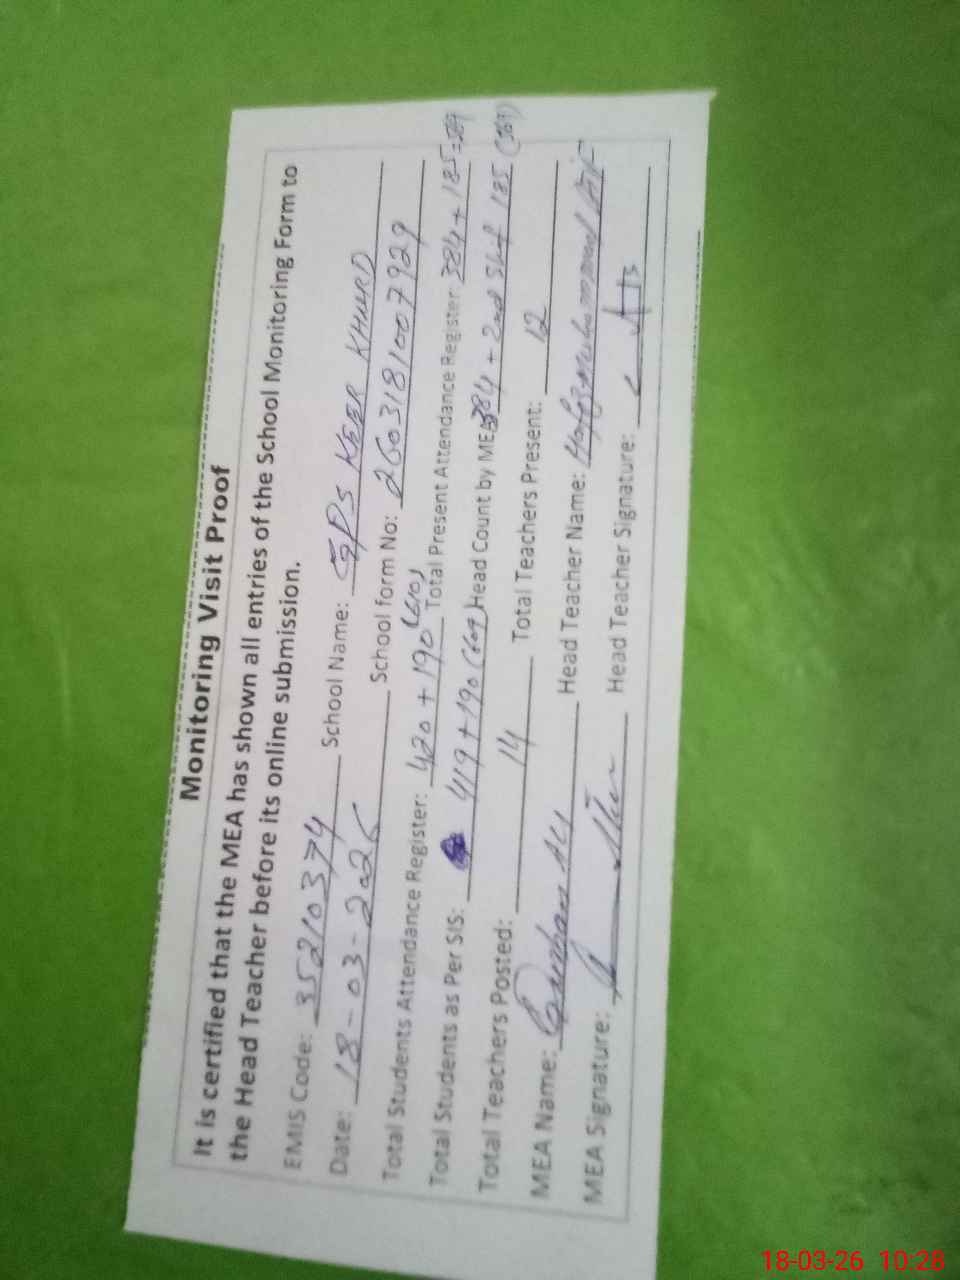 Monitoring Visit Proof
It is certified that the MEA has shown all entries of the School Monitoring Form to
the Head Teacher before its online submission.
EMIS Code: 35210374 School Name: GPS KEER KHURD
Date: 18-03-2026 School form No: 2603181007929
Total Students Attendance Register: 420 + 190 (610) Total Present Attendance Register: 384 + 185 = 569
Total Students as Per SIS: 419 + 190 (609) Head Count by MEA: 384 + 2nd Shif 185 (569)
Total Teachers Posted: 14 Total Teachers Present: 12
MEA Name: Ali Head Teacher Name: Hafiz Muhammad
MEA Signature: Head Teacher Signature:
18-03-26 10:28